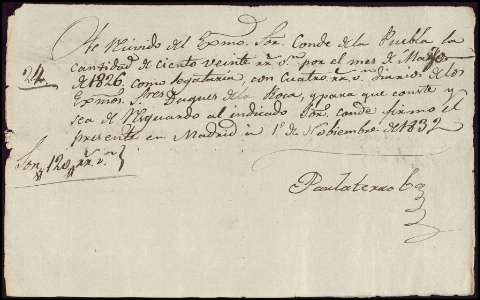 He Recivido del Exmo. Sor. Conde de la Puebla la
24
cantidad de ciento veinte rr.s vn. por el mes de Mayo
de 1826, como legataria, con cuatro rr.s vn. diarios de los
Exmos. Sres. Duques de la Roca, y para que conste y
sea de Resguardo al indicado Sor. conde firmo el
presente en Madrid a 1º de Nobiembre de 1832
Son 120 rr.s vn.